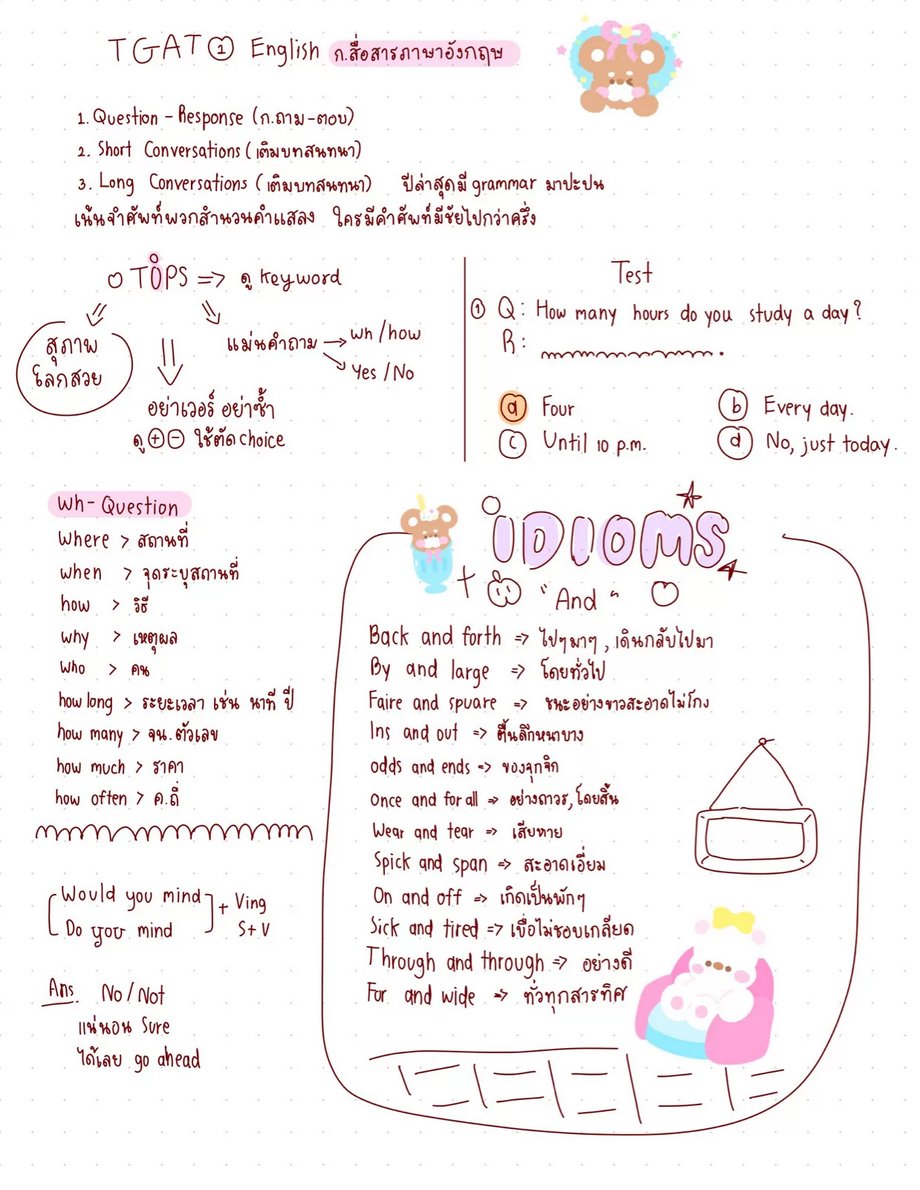 TGAT ① English ก.สื่อสารภาษาอังกฤษ
1. Question - Response (ก.ถาม-ตอบ)
2. Short Conversations (เติมบทสนทนา)
3. Long Conversations (เติมบทสนทนา) ปีล่าสุดมี grammar มาปะปน
เน้นจำศัพท์พวกสำนวนคำแสลง ใครมีคำศัพท์มีชัยไปกว่าครึ่ง
TIPS => ดู keyword
สุภาพ
โลกสวย
แม่นคำถาม → wh/how
Yes/No
อย่าเวอร์ อย่าซ้ำ
ดู ⊕⊖ ใช้ตัด choice
Test
① Q: How many hours do you study a day?
R: .
ⓐ Four
ⓑ Every day.
ⓒ Until 10 p.m.
ⓓ No, just today.
Wh- Question
where > สถานที่
when > จุดระบุสถานที่
how > วิธี
why > เหตุผล
who > คน
how long > ระยะเวลา เช่น นาที ปี
how many > จน.ตัวเลข
how much > ราคา
how often > ค.ถี่
Would you mind
Do you mind
+ Ving
S+V
Ans. No/Not
แน่นอน Sure
ได้เลย go ahead
IDIOMS
"And"
Back and forth => ไปๆมาๆ, เดินกลับไปมา
By and large => โดยทั่วไป
Faire and spuare => ชนะอย่างขาวสะอาดไม่โกง
Ins and out => ตื้นลึกหนาบาง
odds and ends => ของจุกจิก
Once and for all => อย่างถาวร, โดยสิ้น
Wear and tear => เสียหาย
Spick and span => สะอาดเอี่ยม
On and off => เกิดเป็นพักๆ
Sick and tired => เบื่อไม่ชอบเกลียด
Through and through => อย่างดี
Far and wide => ทั่วทุกสารทิศ